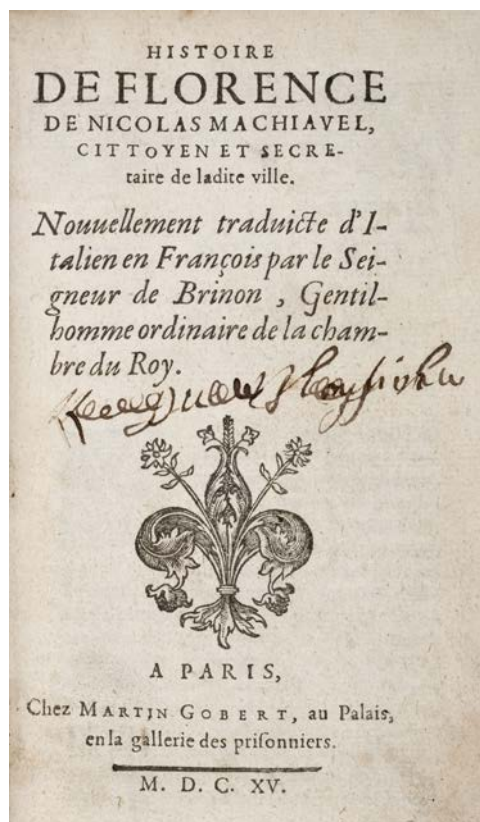 HISTOIRE
DE FLORENCE
DE NICOLAS MACHIAVEL,
CITTOYEN ET SECRE-
taire de ladite ville.
Nouuellement traduicte d'I-
talien en François par le Sei-
gneur de Brinon , Gentil-
homme ordinaire de la cham-
bre du Roy.
A PARIS,
Chez MARTIN GOBERT, au Palais,
en la gallerie des priſonniers.
M. D. C. XV.